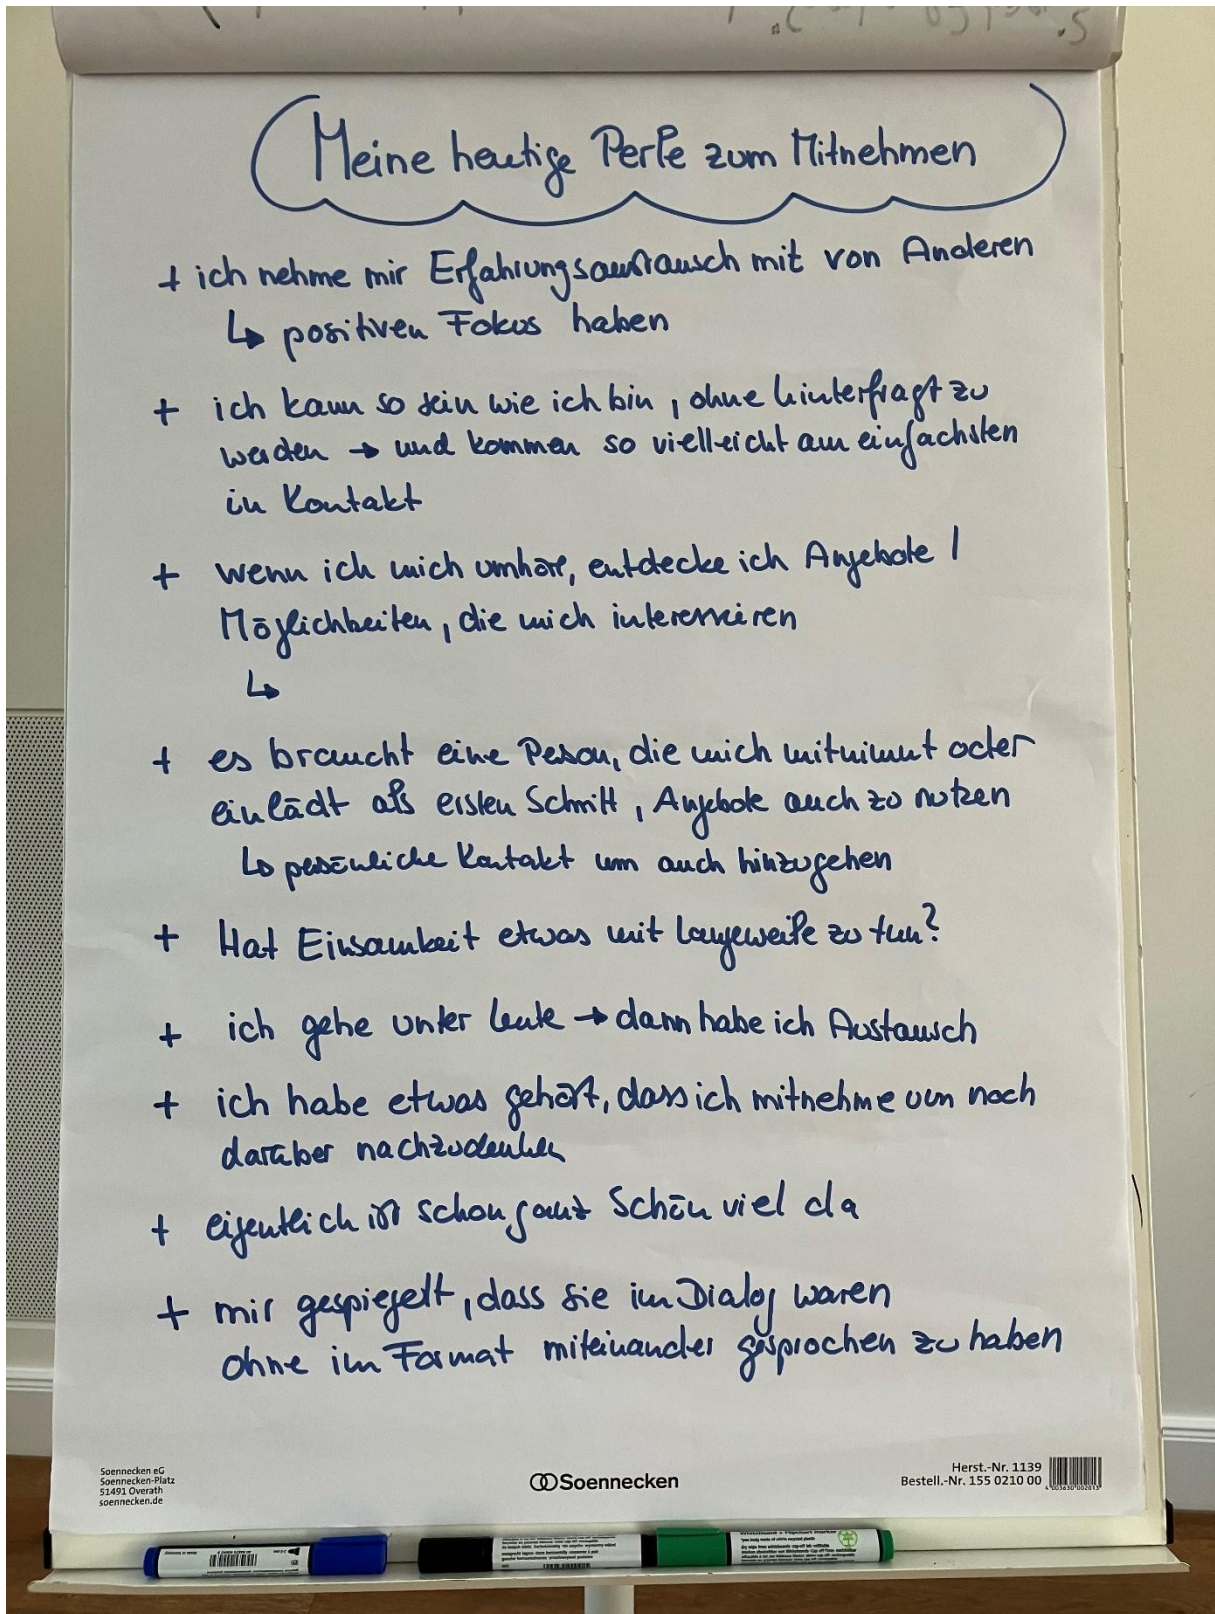 Meine heutige Perle zum Mitnehmen
+ ich nehme mir Erfahrungsaustausch mit von Anderen
↳ positiven Fokus haben
+ ich kann so sein wie ich bin, ohne hinterfragt zu
werden → und kommen so vielleicht am einfachsten
in Kontakt
+ wenn ich mich umhöre, entdecke ich Angebote /
Möglichkeiten, die mich interessieren
↳
+ es braucht eine Person, die mich mitnimmt oder
einlädt als ersten Schritt, Angebote auch zu nutzen
↳ persönliche Kontakt um auch hinzugehen
+ Hat Einsamkeit etwas mit Langeweile zu tun?
+ ich gehe unter Leute → dann habe ich Austausch
+ ich habe etwas gehört, dass ich mitnehme um noch
darüber nachzudenken
+ eigentlich ist schon ganz schön viel da
+ mir gespiegelt, dass sie im Dialog waren
ohne im Format miteinander gesprochen zu haben
Soennecken eG
Soennecken-Platz
51491 Overath
soennecken.de
Soennecken
Herst.-Nr. 1139
Bestell.-Nr. 155 0210 00